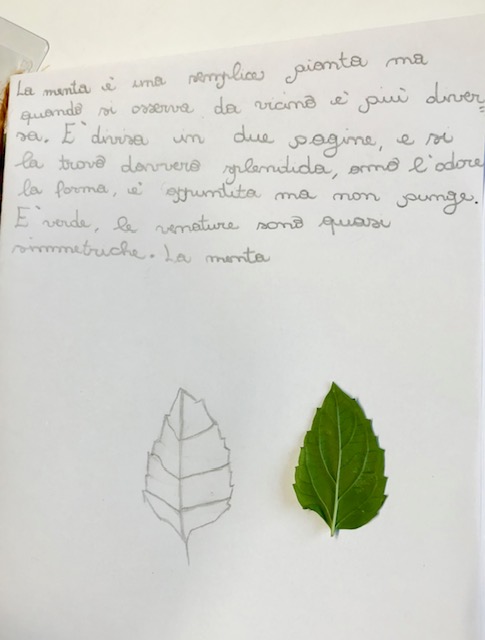 La menta è una semplice pianta ma
quando si osserva da vicino è più diver=
sa. E' divisa in due pagine, e si
la trovo davvero splendida, amo l'odore
la forma, è appuntita ma non punge.
E' verde, le venature sono quasi
simmetriche. La menta